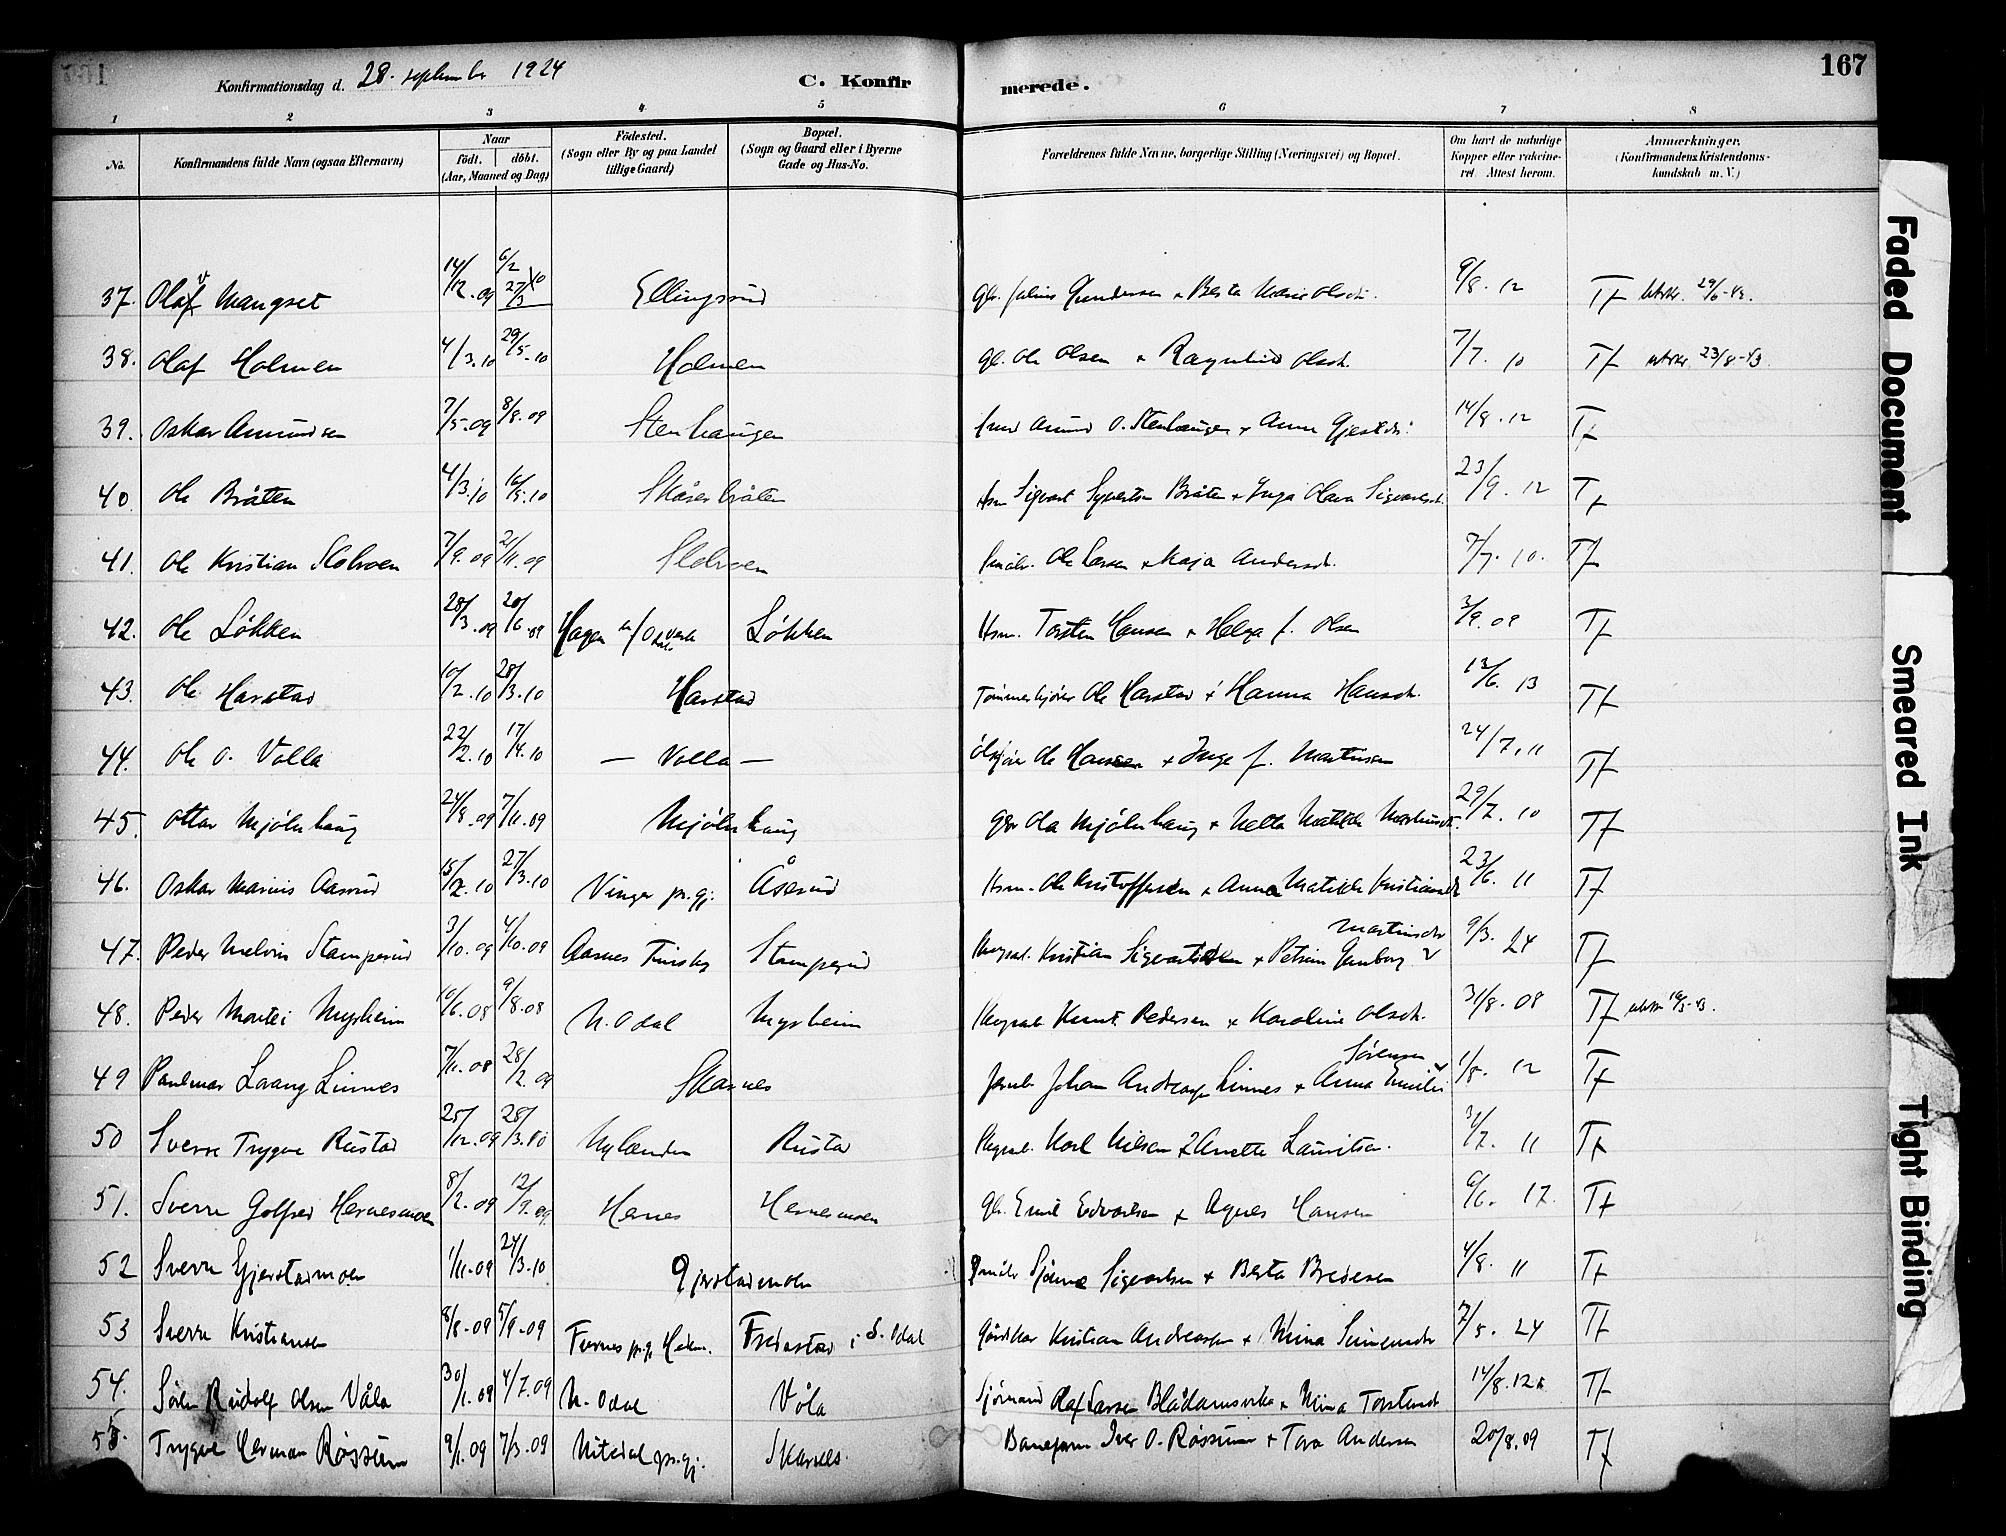 167
Konfirmationsdag d. 28. september 1924
C. Konfirmerede.
1 2 3 4 5 6 7 8
No.
Konfirmandens fulde Navn (ogsaa Efternavn)
Naar
födt. döbt.
(Aar, Maaned og Dag)
Födested.
(Sogn eller By og paa Landet tillige Gaard)
Bopæl.
(Sogn og Gaard eller i Byerne Gade og Hus-No.
Forældrenes fulde Navne, borgerlige Stilling (Næringsvei) og Bopæl.
Om havt de naturlige Kopper eller vakcineret. Attest herom.
Anmærkninger.
(Konfirmandens Kristendomskundskab m. V.)
37. Olaf Mangset 14/12.09 6/2 27/3 10 Ellingsrud Gbr. Julius Gundersen + Berta Marie Olsdt. 9/8.12 Tf utskr. 29/6-43.
38. Olaf Holmen 4/3.10 29/5.10 Holmen Ole Olsen + Ragnhild Olsdt. 7/7 10 Tf utskr. 23/8-43.
39. Oskar Amundsen 7/5.09 8/8.09 Stenhaugen Amund O. Stenhaugen + Anne Gjestdr. 14/8.12 Tf
40. Ole Bråten 4/3.10 16/5.10 Skåresbråten Hsm Sigvart Syvertsen Bråten + Inga Olava Sigvartsdt. 23/9.12 Tf
41. Ole Kristian Slobroen 7/9.09 21/11.09 Slobroen Ole Larsen + Maja Andersdt. 7/7.10. Tf
42. Ole Løkken 28/3.09 20/6.09 Hagen Løkken Hsm. Torsten Hansen + Helga f. Olsen 3/9.09 Tf
43. Ole Harstad 10/2.10 28/3.10 Harstad Tømmerkjører Ole Harstad + Hanna Hansdt. 13/6.13 Tf
44. Ole O. Volla 22/2.10 17/4.10 — Volla — Ole Hansen + Inge f. Martinsen 24/7.11 Tf
45. Ottar Mjølnhaug 24/8.09 7/11.09 Mjølnhaug Gbr Ola Mjølnhaug + Netta Matilde Martinsdt. 29/7.10 Tf
46. Oskar Marius Aasrud 15/2.10 27/3.10 Vinger pr.gj. Åserud Hsm. Ole Kristoffersen + Anna Matilde Kristiansdt 23/6.11 Tf
47. Peder Melvin Stamperud 3/10.09 4/10.09 Aasnes Finskog Stamperud Kristian Sigvartsen + Petrine Gunborg Martinsdtr 9/3.24 Tf
48. Peder Myrheim 16/6.08 9/8.08 N. Odal Myrheim Knut Pedersen + Karoline Olsdt. 31/8.08 Tf utskr.
49 Paulmar Lvang Linnes 7/11.08 28/2.09 Skarnes Johan Andreas Linnes + Anna Emilie Sørensen 1/8.12 Tf
50 Sverre Trygve Rustad 25/12.09 28/3.10 Nylænden Rustad Karl Nilsen + Anette Lauritsen. 31/7.11 Tf
51. Sverre Golfred Hernesmoen 8/2.09 12/9.09 Hernes Hernesmoen Gbr. Emil Edvardsen + Agnes Hansen 6/6.17. Tf
52 Sverre Gjerstadmoen 1/11.09 24/3.10 Gjerstadmoen Sigvartsen + Berta Bredesen 4/8.11 Tf
53 Sverre Kristiansen 8/8.09 5/9.09 Furnes pr.gj. Hedm. Fredestad i S. Odal Kristian Andreassen + Mina Simensdtr 7/5.24 Tf
54. Søren Rudolf Olsen Våla 30/1.09 4/7.09 N. Odal Våla Sjømand Olaf Larsen Blådamsvika + Mina Torstensdt 14/8.12 Tf
55. Trygve Herman Røssum 9/1.09 7/3.09 Nitedal pr.gj. Skarnes. Baneform Iver O. Røssum + Tora Andersen 20/8.09 Tf
Faded Document
Smeared Ink
Tight Binding